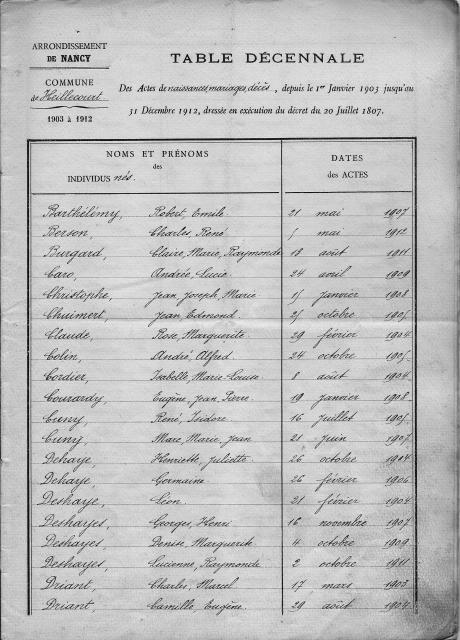 ARRONDISSEMENT
DE NANCY
COMMUNE
de Heillecourt
1903 à 1912
TABLE DÉCENNALE
Des Actes de naissances, mariages, décès, depuis le 1er Janvier 1903 jusqu'au
31 Décembre 1912, dressée en exécution du décret du 20 Juillet 1807.
NOMS ET PRÉNOMS
des
INDIVIDUS nés.
DATES
des ACTES
Barthélémy, Robert, Emile. 21 mai 1907
Berson, Charles, René 5 mai 1912
Burgard, Claire, Marie, Raymonde 18 août 1911
Caro, Andrée, Lucie 24 avril 1909
Christophe, Jean, Joseph, Marie 15 janvier 1908
Chuimert, Jean, Edmond. 25 octobre 1905
Claude, Rose, Marguerite 29 février 1904
Colin, André, Alfred 24 octobre 1905
Cordier, Isabelle, Marie-Louise. 8 août 1904
Courardy, Eugène, Jean, Pierre. 19 janvier 1908
Cuny, René, Isidore 16 juillet 1905
Cuny, Marc, Marie, Jean 21 juin 1907
Dehaye, Henriette, Juliette. 26 octobre 1904
Dehaye, Germaine 26 février 1906
Deshaye, Léon. 21 février 1904
Deshayes, Georges, Henri 16 novembre 1907
Deshayes, Denise, Marguerite 4 octobre 1909
Deshayes, Lucienne, Raymonde 2 octobre 1911
Driant, Charles, Marcel 17 mars 1903
Driant, Camille, Eugène. 29 août 1904